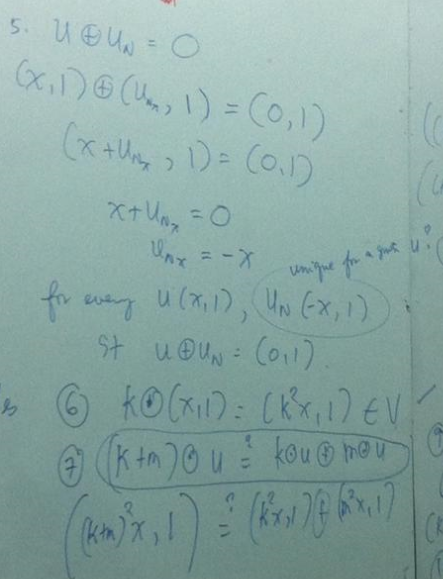 5. u ⊕ u_N = 0
(x,1) ⊕ (u_Nx, 1) = (0,1)
(x + u_Nx, 1) = (0,1)
x + u_Nx = 0
u_Nx = -x
unique for a given u?
for every u(x,1), u_N(-x,1)
st u ⊕ u_N = (0,1).
⑥ k ⊙ (x,1) = (k²x,1) ∈ V
⑦ (k+m) ⊙ u ≟ k⊙u ⊕ m⊙u
((k+m)²x, 1) ≟ (k²x,1) ⊕ (m²x,1)